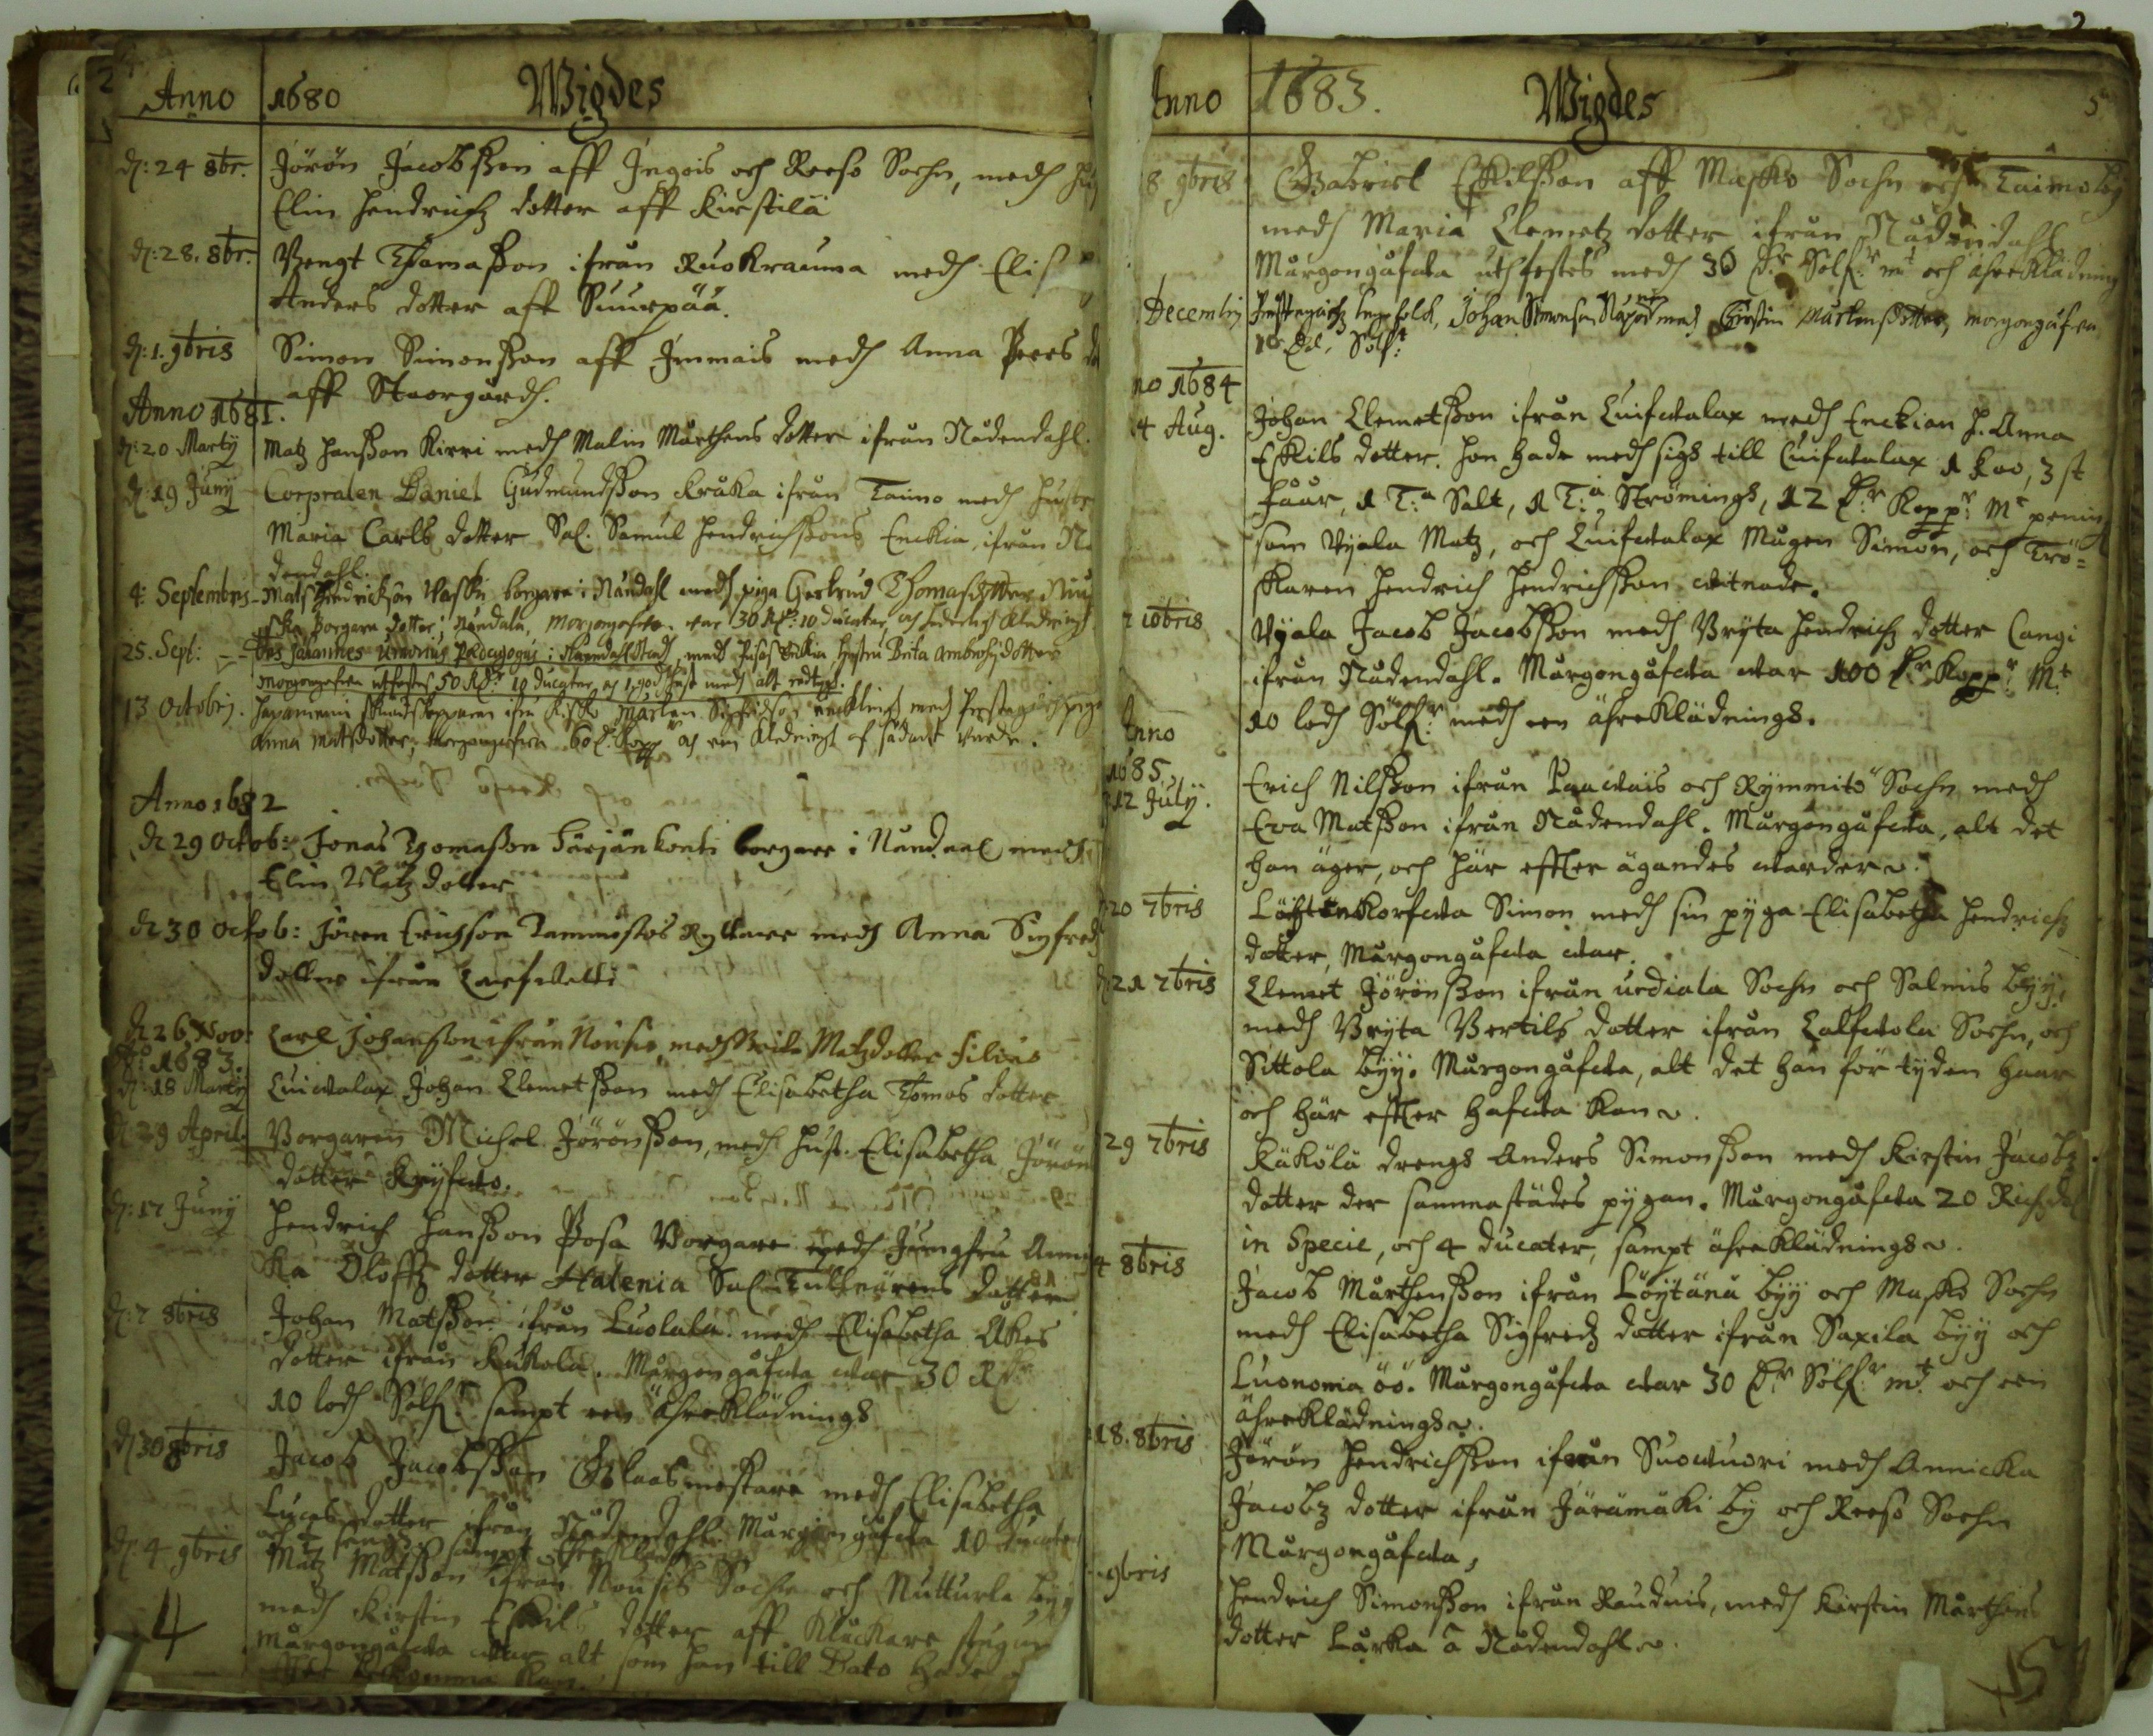 2
Anno 1680 Wigdes
d: 24 8br. Jörön Jacobsson aff Ingois och Reeso Sochn, medh
Elin Hendrichz dotter aff Kirstilä
d: 28. 8br. Bengt Thomasson ifrån Ruskrauma medh Elis
Anders dotter aff Suurpää.
d: 1. 9bris Simon Simonsson aff Immais medh Anna Peers
aff Storgårdh.
Anno 1681.
d: 20 Martij Matz Hansson Kirri medh Malin Mårthens dotter ifrån Nådendahl.
d: 19 Junij Corpralen Daniel Gudmundsson Kråka ifrån Taimo medh Hustr
Maria Carls dotter Sal. Samul Hendrichssons Enckia, ifrån Nå
dendahl.
4: Septembris Mats Hendrickson Wasku borgare i Nåndahl medh piga Gertrud Thomasdotter
borgare dotter i Nåndala, Morgongofwa war 30 Rd: 10 ducater och hederligh Kledningh
25. Sept: Johannes Pædagogus i Staden, medh Enckia Hustru Brita Ambrosij dotter
Morgongofwa uthfestes 50 Rd: 10 ducater och 1 godh Häst medh alt redtygh.
13 Octobrij. Mårten Sigfridson medh
Anna Matsdotter, Morgongofwa 60 d. Kopp och een Kledningh af sådant wärde.
Anno 1682
d 29 Octob: Jonas Thomasson Särjänkonti borgare i Nåndaal medh
Elin Matz dotter
d 30 Octob: Jören Erichson Tammistos Ryttare medh Anna Sigfredz
dotter ifrån
d 26 Nov: Carl Johansson ifrån Nousis, medh Brita Matzdotter Filius
Ao 1683.
d: 18 Martij Luiwalax Johan Clemetsson medh Elisabetha Thomos dotter
d 29 April. Borgaren Michel Jörönsson, medh Hust. Elisabetha Jörön
dotter Kryfwo.
d: 17 Junij Hendrich Hansson Posa Borgare medh Jungfru Anni
ka Oloffz dotter Halenia Sal. Tullnärens dotter
d: 7 8bris Johan Matsson ifrån Luolala medh Elisabetha Åkes
dotter ifrån Kukola. Mårgongåfwa war 30 Rdr
10 lodh Sölfr sampt een ährekllädningh
d 30 8bris Jacob Jacobsson Glaasmestare medh Elisabetha
Lucas dotter ifrån Nådendahl. Mårgongåfwa 10 ducater
och 1 sampt
d: 4 9bris Matz Matsson ifrån Nousis Sochn och Nutturla byy
medh Kirstin Eskils dotter aff Kluckare stugun
Mårgongåfwa war alt som han till Dato hade
bekomma kan.
4
2
5
Anno 1683. Wigdes
8 9bris Gabriel Eskilsson aff Masko Sochn och Taimoby
medh Maria Clemetz dotter ifrån Nådendahl
Mårgongåfwa uthfestes medh 30 dr Sölfr mt och ährekllädning
Decembrij Johan Simonsson medh Kirstin Mårtensdotter, morgongåfwa
10 d. Sölfr:
no 1684
4 Aug. Johan Clemetsson ifrån Luifwalax medh Enckian H. Anna
Eskils dotter. Hon hade medh sigh till Luifwalax 1 koo, 3 st
fåår, 1 T:a Salt, 1 T:a Strömingh, 12 dr Koppr: Mt pening
som Ujala Matz, och Luifwalax Mågen Simon, och Trö=
skaren Hendrich Hendrichsson witnade.
7 10bris Ujala Jacob Jacobsson medh Bryta Hendrichz dotter Cangi
ifrån Nådendahl. Mårgongåfwa war 100 dr Koppr: Mt
10 lodh Sölfr: medh een ährekllädningh.
Anno
1685.
12 Julij. Erich Nilsson ifrån Paawais och Rymmito Sochn medh
Eva Matsson ifrån Nådendahl. Mårgongåfwa, alt det
han äger, och här effter ägandes warder.
20 7bris Löhtenkorfwa Simon medh sin pyga Elisabetha Hendrichz
dotter, Mårgongåfwa war.
d: 21 7bris Clemet Jörönsson ifrån Urdiala Sochn och Salmis byy,
medh Bryta Bertils dotter ifrån Calfwola Sochn, och
Sittola byy. Mårgongåfwa, alt det han för tyden haar
och här effter hafwa kan.
29 7bris Käkölä drengh Anders Simonsson medh Kirstin Jacobz
dotter der sammastädes pygan. Mårgongåfwa 20 Richzd
in Specie, och 4 ducater, sampt ährekllädningh.
4 8bris Jacob Mårthensson ifrån Löytänä byy och Masko Sochn
medh Elisabetha Sigfredz dotter ifrån Saxila byy och
Luonoma öö. Mårgongåfwa war 30 dr Sölfr: mt och een
ährekllädningh.
18. 8bris Jörön Hendrichsson ifrån Suowuori medh Annicka
Jacobz dotter ifrån Järämäki by och Reeso Sochn
Mårgongåfwa,
9bris Hendrich Simonsson ifrån Rauduis, medh Kirstin Mårthens
dotter Lårka à Nådendahl.
5